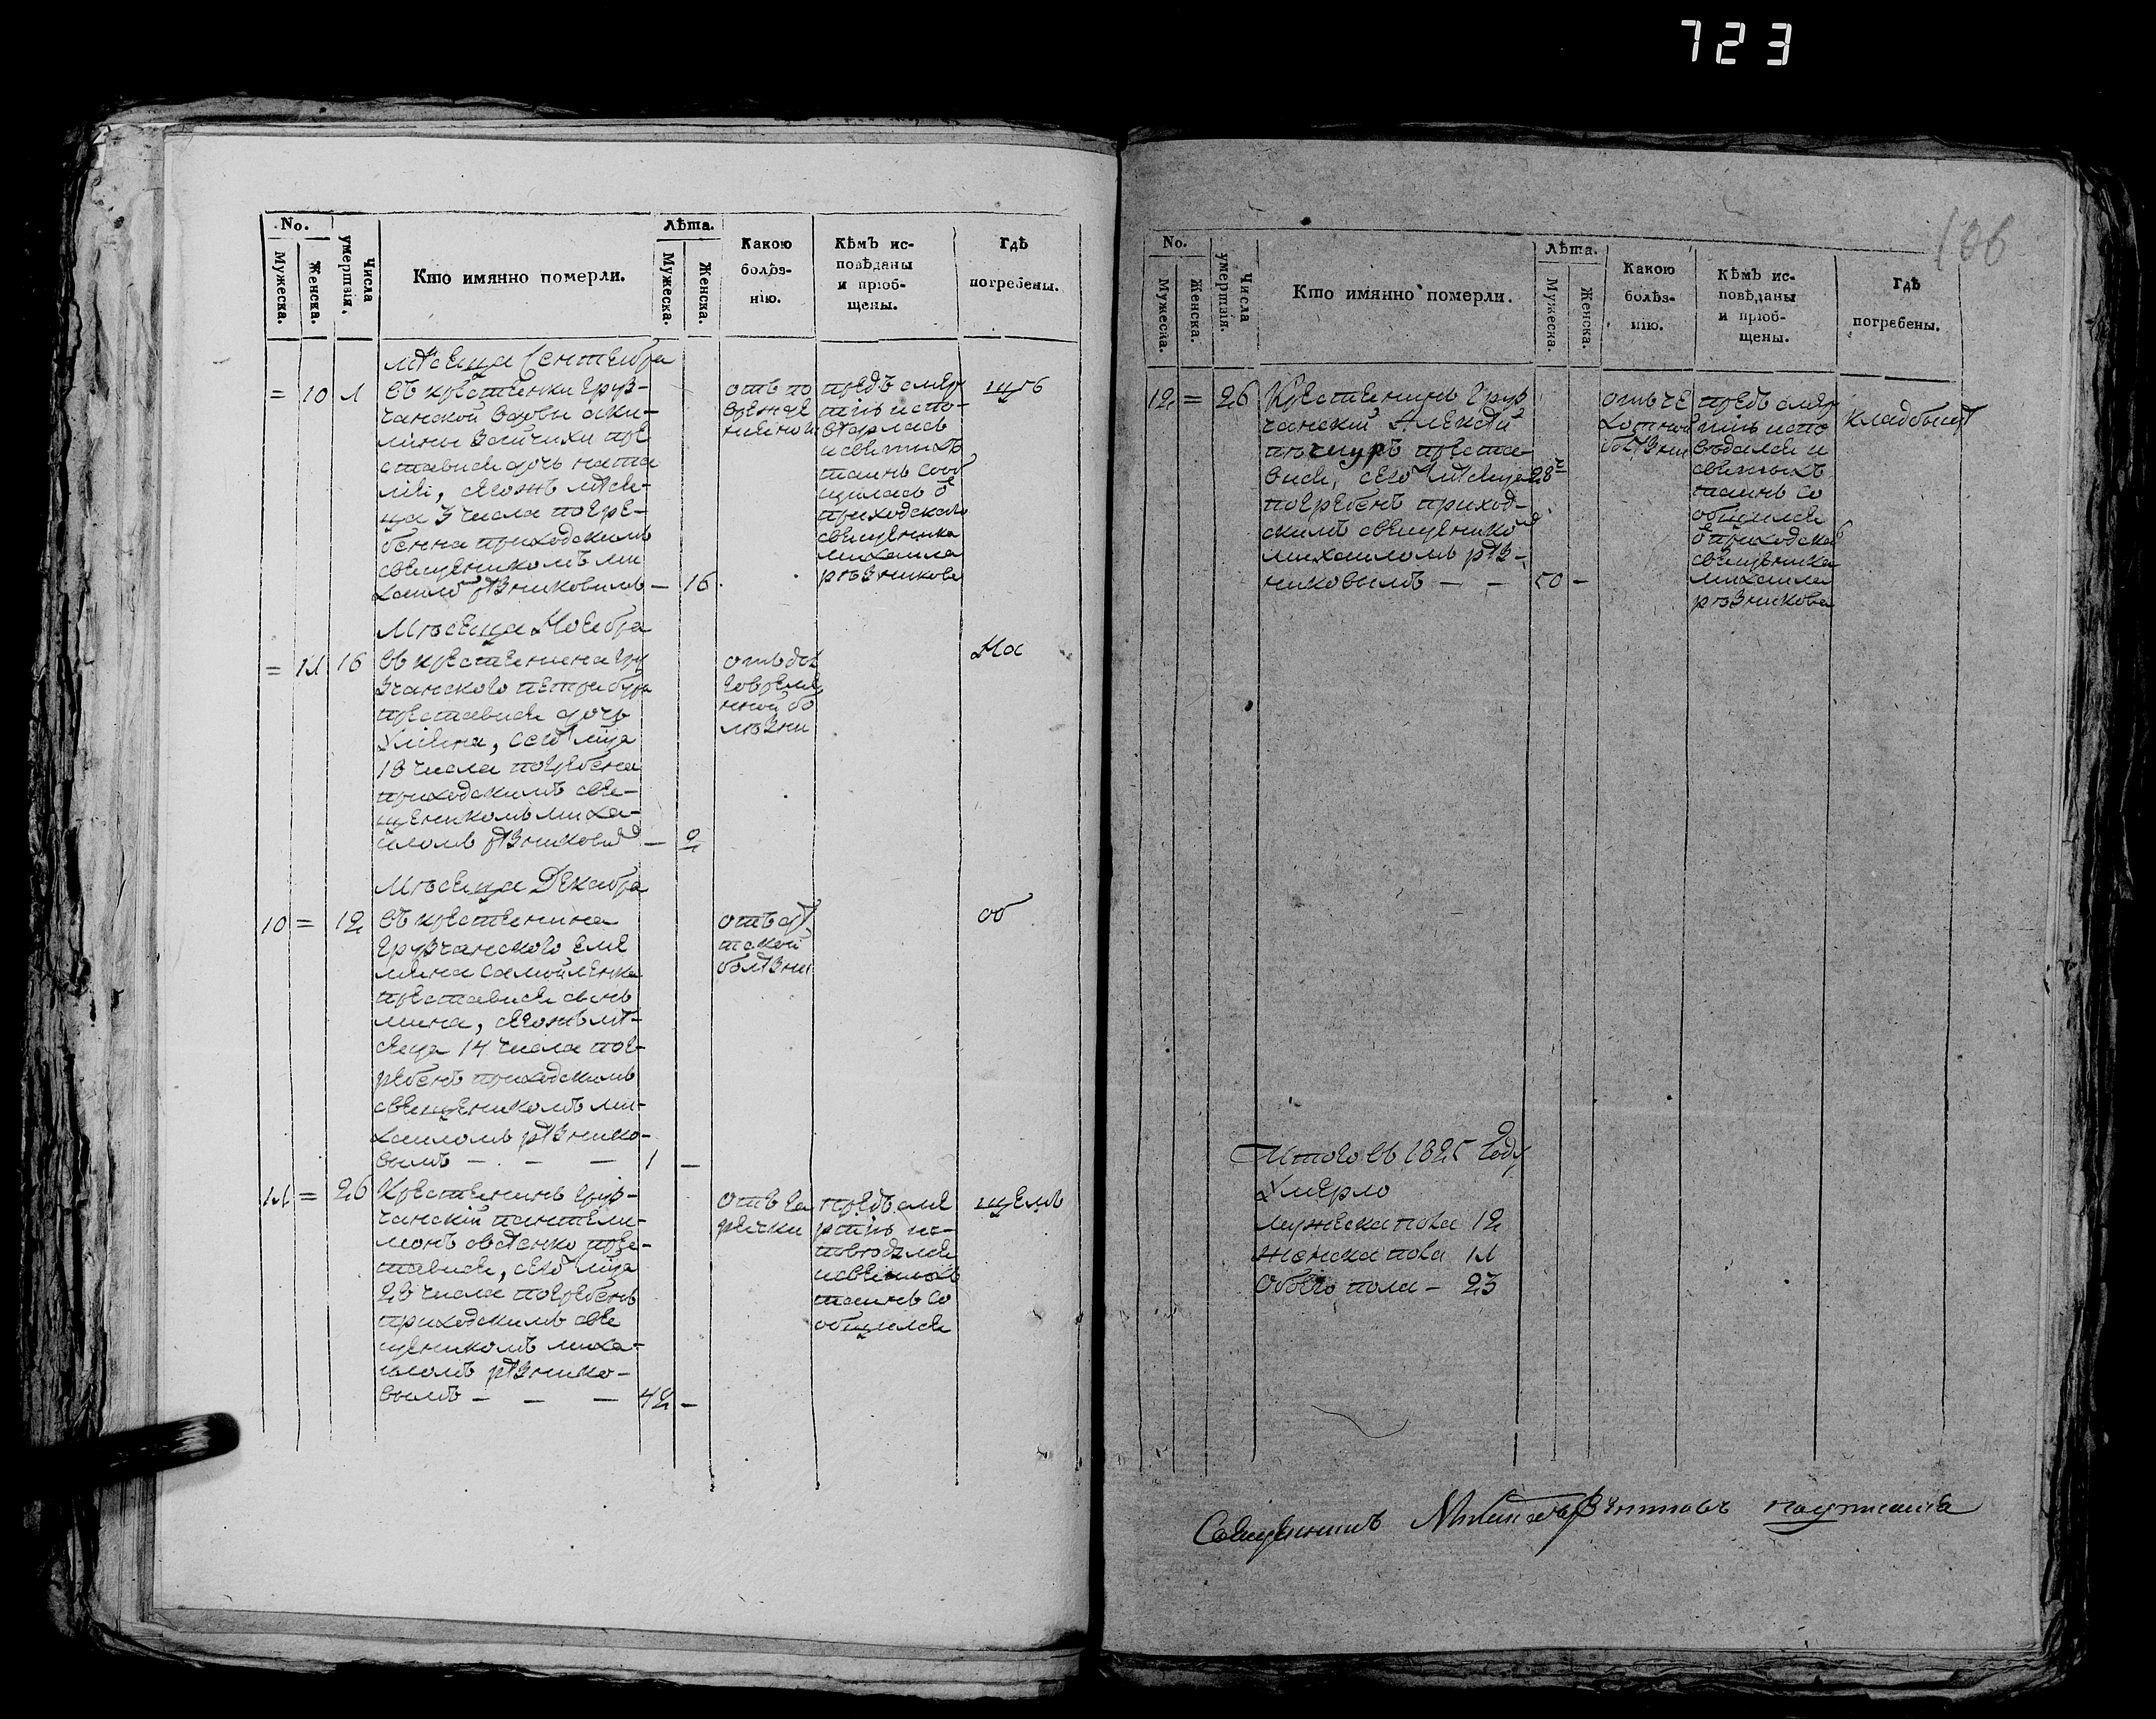 723
No.
Мужеска.
Женска.
Числа умертвія.
Кто имянно померли.
Лѣта.
Мужеска.
Женска.
Какою болѣз-нію.
Кѣмъ ис-повѣданы и пріоб-щены.
Гдѣ погребены.
мѣсяца Сентебра
= 10
въ крестьенки груз-
чанской вдови аки-
лины Зайчихи пре
ставися дочь ната
лія, сегожъ мѣсе-
ца 3 числа погре-
бенна приходскимъ
священикомъ ми
хаиломъ рѣзниковимъ — 16
отъ по
предъ смер
тію испо-
ведалась
и светихъ
таинъ сооб
щилась
приходскаго
священика
михаила
резникова
Мѣсеца Ноебра
= 11 16
въ крестьенина гру
зчанского петра
преставися дочь
Улiяна, сего мца
18 числа погребена
приходскимъ све-
щеникомъ миха-
иломъ рѣзникови —
отъ
говремѣ
нной бо
лѣзни
На
Мѣсеца Декабра
10 = 12
въ крестьенина
грузчанского Еме
ляна самойленка
преставися синъ
мина, сегожъ мѣ-
сеца 14 числа пог-
ребенъ приходскимъ
свещеникомъ ми-
хаиломъ рѣзнико-
вымъ — — — 1 —
отъ дѣ
тской
болѣзни
об
11 = 26
Крестьенинъ груз-
чанскій пантели-
монъ овсенко пре-
тависе, сего мца
28 числа погребенъ
приходскимъ све
щеникомъ миха-
иломъ рѣзнико-
вымъ — — — 42 —
отъ га
рячки
предъ сме
ртію ис-
поведалсе
и светихъ
таинъ со
общилсе
щемъ
106
No.
Мужеска.
Женска.
Числа умертвія.
Кто имянно померли.
Лѣта.
Мужеска.
Женска.
Какою болѣз-нію.
Кѣмъ ис-повѣданы и пріоб-щены.
Гдѣ погребены.
12 = 26
Крестьенинъ груз
чанскій Алексѣй
преста-
висе, сего мѣсеца 28
погребенъ приход-
скимъ свещенико
михаиломъ рѣз-
никовымъ — — 50 —
отъ че
хотной
болѣзни
предъ смер
тію испо
ведалсе и
светыхъ
таинъ со
общилсе
приходска
свещеника
михаила
резникова
кладбищѣ
Итого въ 1825 году
Умерло
мужеска пола 12
женска пола 11
обоего пола — 23
Священникъ Михаилъ Рѣзниковъ